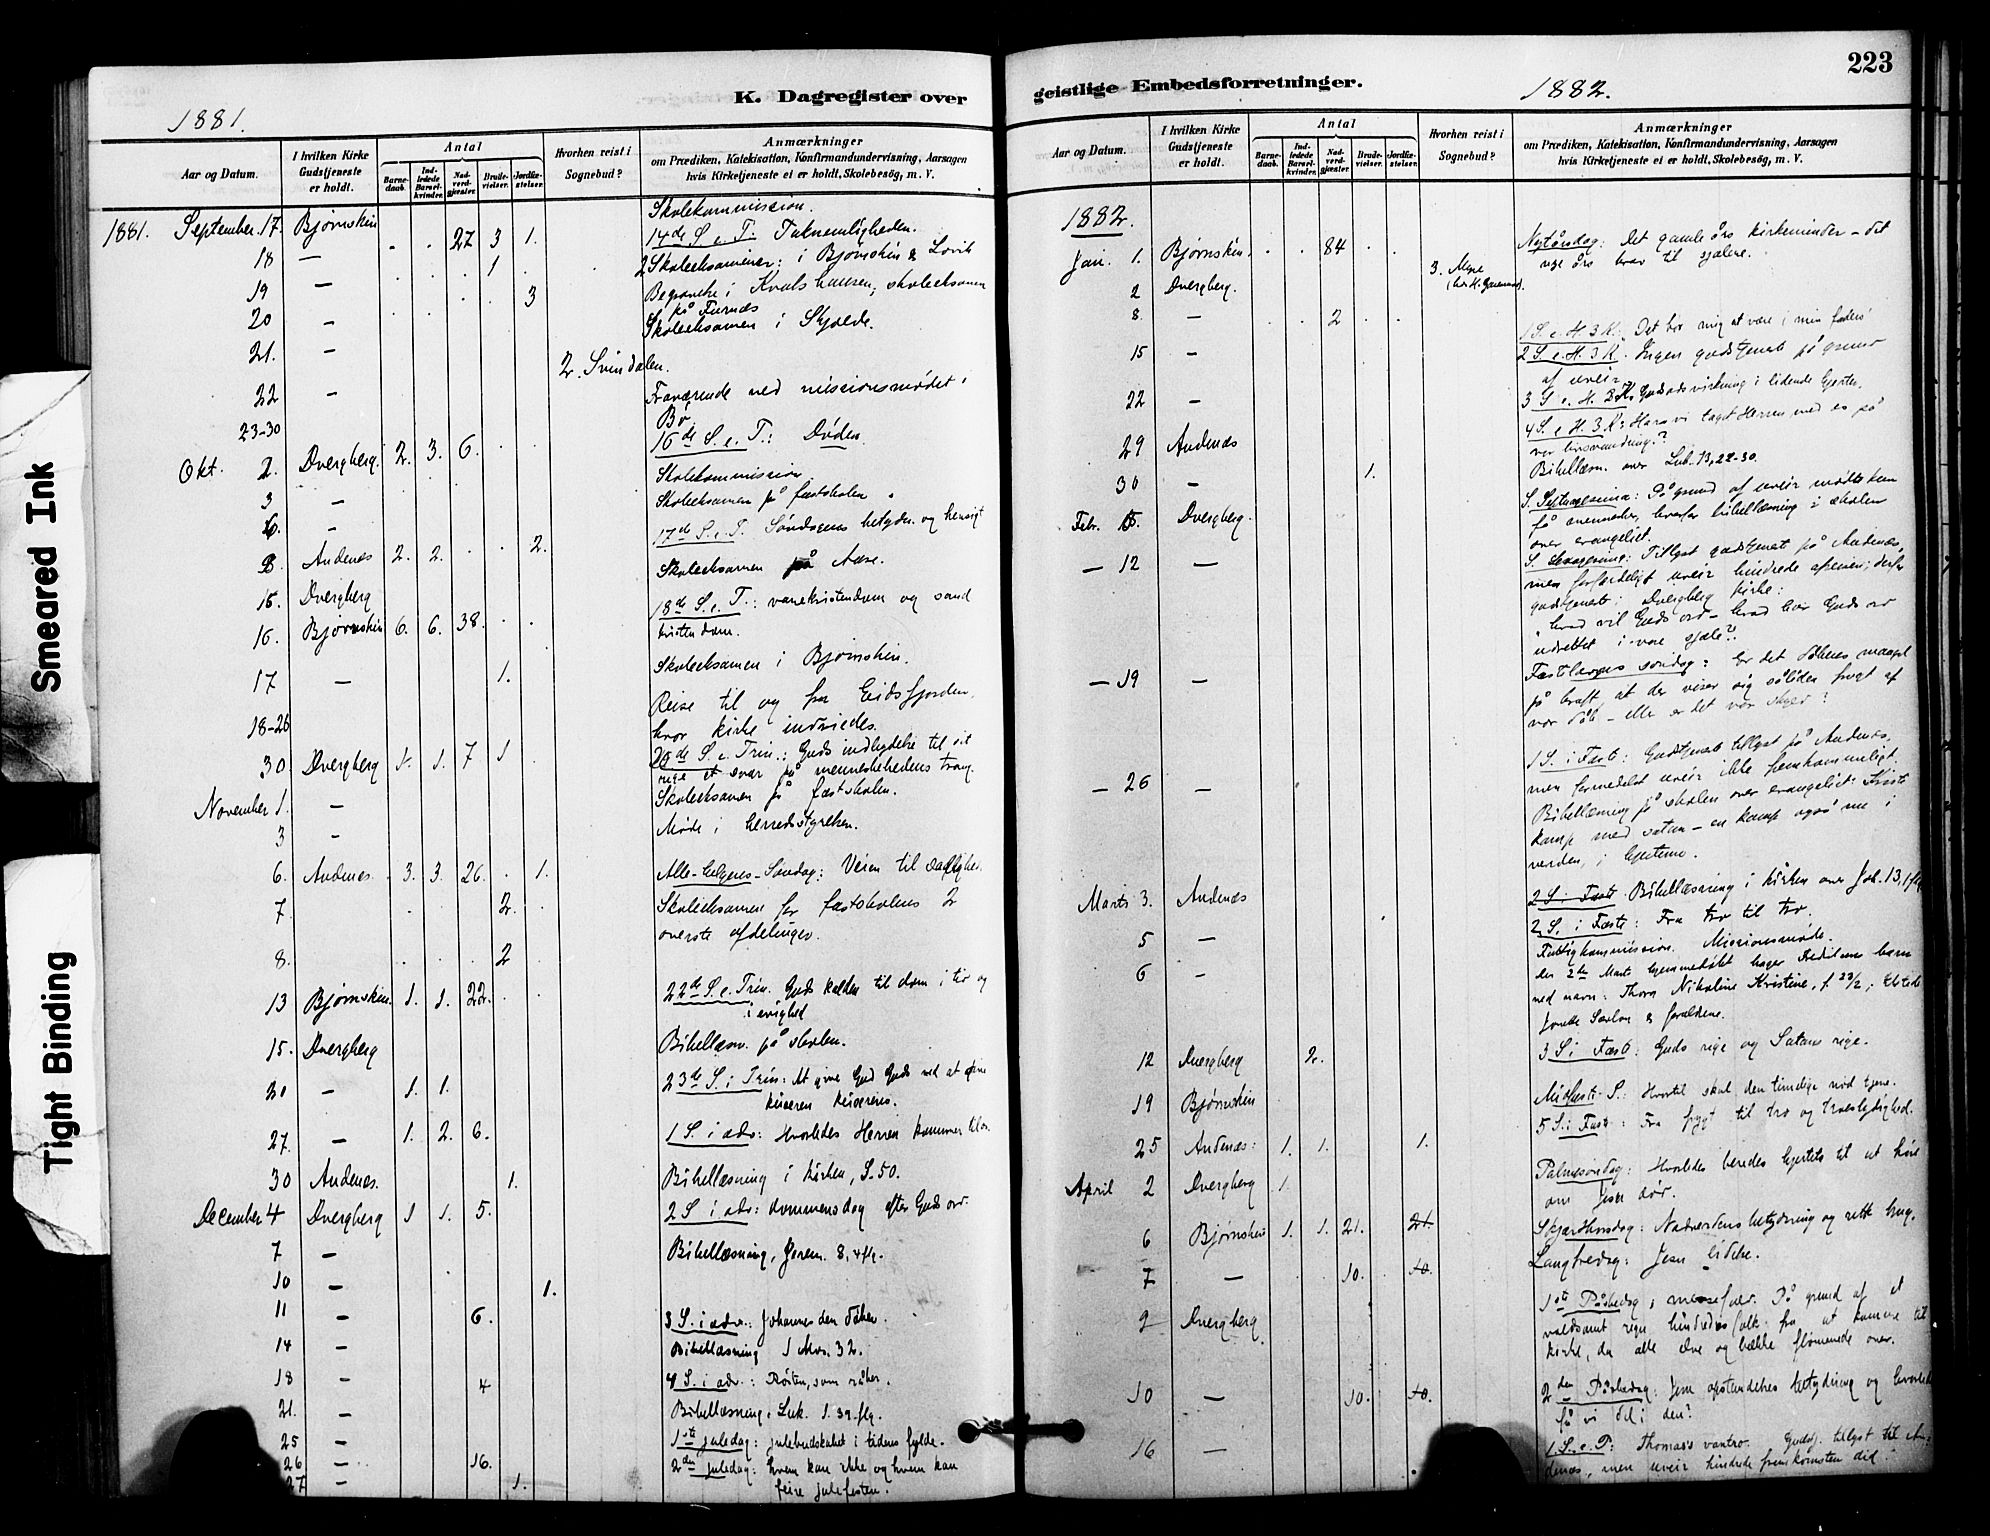 Smeared Ink
Tight Binding
K. Dagregister over
1881.
Aar og Datum.
I hvilken Kirke Gudstjeneste er holdt.
Antal
Barnedaab.
Indledede Barselkvinder.
Nadverdgjæster.
Brudevielser.
Jordfæstelser.
Hvorhen reist i Sognebud?
Anmærkninger
om Prædiken, Katekisation, Konfirmandundervisning, Aarsagen
hvis Kirketjeneste ei er holdt, Skolebesøg, m. V.
Skolekommission.
1881. September 17. Bjørnskin . . 27 3 1. 14de S. e. T: Taknemligheden.
18 — . . . 1 2 Skoleeksamener: i Bjørnskin & Lovik
19 — . . . . 3 Begravelse i Kvalshausen; skoleeksamen
på Furnæs
20 — Skoleeksamen i Skjolde.
21. — 2. Svindalen.
22 — Fraværende ved missionsmødet i
23-30 Bø
Okt. 2. Dvergberg. 2. 3. 6. . . 16de S. e. T.: Døden.
3 — Skolekommission
6. — Skoleeksamen på fastskolen.
8. Andenæs 2. 2. . . 2. 17de S. e. T. Søndagens betydn. og hensigt
15. Dvergberg Skoleeksamen på Aase.
16. Bjørnskin 6. 6. 38. . . 18de S. e. T.: vanekristendom og sand
kristendom.
17 — 1. Skoleeksamen i Bjørnskin.
18-26 Reise til og fra Eidsfjorden,
hvor kirke indviedes.
30 Dvergberg 1. 1. 7 1 20de S. e. Trin.: Guds indbydelse til sit
rige et svar på menneskehedens trang.
November 1. — Skoleeksamen på fastskolen.
3 — Møde i herredsstyrelsen.
6. Andenæs. 3. 3. 26. . 1. Alle-helgenes-Søndag: Veien til salighed.
7. 2. Skoleeksamen for fastskolens 2
øverste afdelinger.
8. 2
13 Bjørnskin. 1. 1. 22. . . 22de S. e. Trin. Guds kalden til dom i tid og
i evighed
15. Dvergberg Bibellæsn. på skolen.
20 — 1. 1. 23de S. i Trin: At give Gud Guds ved at give
keiseren keiserens.
27. — 1. 2. 6. 1 S. i adv: Hvorledes Herren kommer til os.
30 Andenæs. 1. Bibellæsning i kirken, S. 50.
December 4 Dvergberg 1 1. 5. 2 S. i adv: dommens dag efter Guds ord.
7 — Bibellæsning, Jerem. 8, 4 flg.
10 — 1.
11 — 6. 3 S. i adv.: Johannes den døber.
14 — Bibellæsning 1 Mos. 32.
18 — 4 4 S. i adv.: Røsten, som råber.
21. — Bibellæsning. Luk. 1. 39. flg.
25 — 1ste juledag: julebudskabet i tidens fylde.
26 — 16. 2den juledag: hvem kan ikke og hvem kan
27 — 1. feire julefesten.
geistlige Embedsforretninger.
1882.
223
Aar og Datum.
I hvilken Kirke Gudstjeneste er holdt.
Antal
Barnedaab.
Indledede Barselkvinder.
Nadverdgjæster.
Brudevielser.
Jordfæstelser.
Hvorhen reist i Sognebud?
Anmærkninger
om Prædiken, Katekisation, Konfirmandundervisning, Aarsagen
hvis Kirketjeneste ei er holdt, Skolebesøg, m. V.
1882.
Jan. 1. Bjørnskin. . . 84 . . Nytårsdag: Det gamle års kirkeminder - det
nye års krav til sjælene.
2 Dvergberg. 3. Myre
8. — . . 2 . . 1 S. e. H. 3 K.: Det bør mig at være i min faders
15 — 2 S. e. H. 3 K. Ingen gudstjenest på grund
af uveir.
22 — 3 S. e. H. 3 K. Gudsordsvirkning i lidende hjerter.
29 Andenæs 4 S. e. H. 3 K: Have vi taget Herren med os på
vor livsvandring?
30 — 1. Bibellæsn. over Luk. 13, 22-30.
Febr. 5. Dvergberg. S. Septuagesima: På grund af uveir mødte kun
få mennesker, hvorfor bibellæsning i skolen
over evangeliet.
— 12 — S. Sexagesima: Tillyst gudstjenest på Andenæs,
men forfærdeligt uveir hindrede afreisen; derfor
gudstjenest i Dvergberg kirke:
hvad vil Guds ord - hvad har Guds ord
udrettet i vore sjæle?
— 19 — Fastelavns søndag: Er det dåbens mangel
på kraft at der viser sig såliden frugt af
vor dåb - eller er det vor skyld?
— 26 — 1 S. i Fast: Gudstjenest tillyst på Andenæs,
men formedelst uveir ikke fremkommeligt.
Bibellæsning på skolen over evangeliet: Kristi
kamp med satan - en kamp også nu i
verden, i hjerterne.
Marts 3. Andenæs 2 S. i Fast Bibellæsning i kirken over Joh. 13, 1 flg.
5 — 2 S. i Faste: Fra tro til tro.
6 — Fattigkommission. Missionsmøde.
den 2de Mart hjemmedøbt
ved navn: Thora Nikoline Kristine, f. 23/2;
12 Dvergberg 2. 3 S. i Fast: Guds rige og Satans rige.
19 Bjørnskin Midfaste S.: Hvortil skal den timelige nød tjene.
25 Andenæs: 1. 1. 1. 5 S. i Fast: Fra frygt til tro og troeslydighed.
April 2 Dvergberg 1. Palmesøndag: Hvorledes beredes hjertets til at høre
om Jesu død.
6 Bjørnskin 1. 1. 21. 21. Skjærthorsdag: Nadverdens betydning og rette brug.
7 — 10. 10. Langfredag: Jesu lidelse.
9 Dvergberg 1ste Påskedag; messefald. På grund af et
voldsomt regn hindredes folk fra at komme til
kirke, da alle elve og bække flømmede over.
10 — 10. 10. 2den Påskedag: Jesu opstandelses betydning og hvorledes
få vi del i den?
16 — 1. S. e. P: Thomas's vantro. Gudstj. tillyst til An-
denæs, men uveir hindrede fremkomsten did.